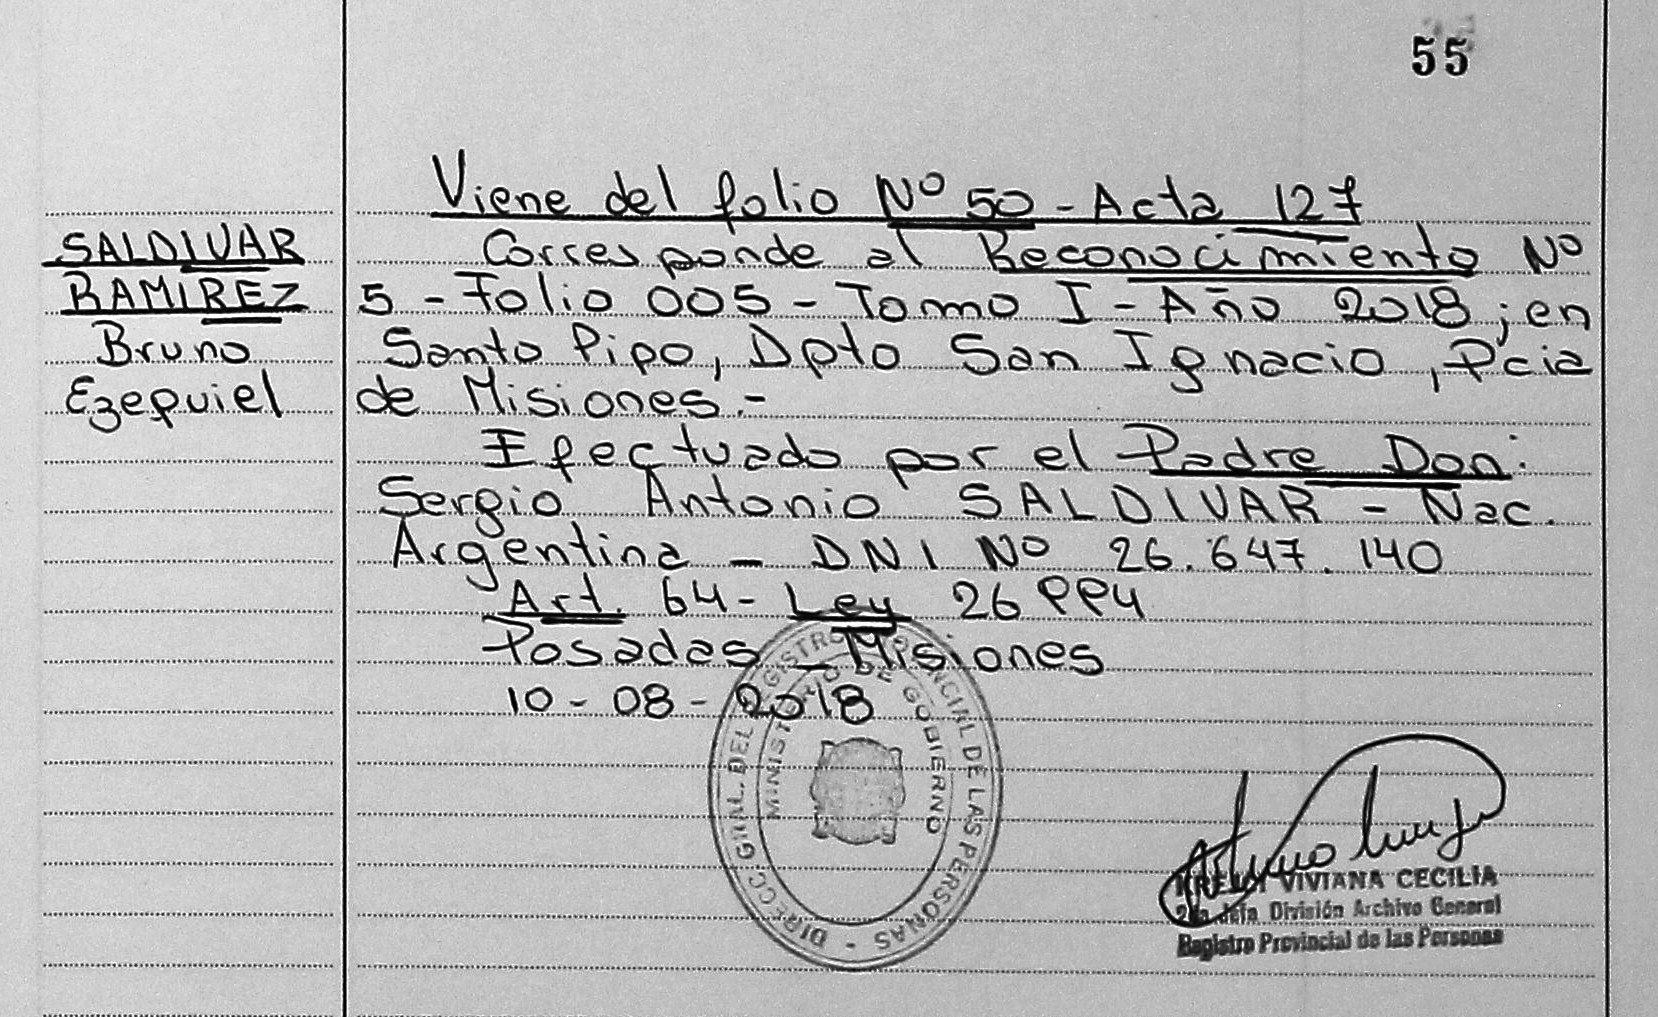 55
Viene del folio Nº 50 - Acta 127
SALDIVAR
RAMIREZ
Bruno
Ezequiel
Corresponde al Reconocimiento Nº
5 - Folio 005 - Tomo I - Año 2018 ; en
Santo Pipo, Dpto San Ignacio, Pcia
de Misiones.-
Efectuado por el Padre Don:
Sergio Antonio SALDIVAR - Nac.
Argentina - DNI Nº 26.647.140
Art. 64 - Ley 26994
Posadas - Misiones
10 - 08 - 2018
DIRECC GRAL. DEL REGISTRO PROVINCIAL DE LAS PERSONAS -
MINISTERIO DE GOBIERNO
VIVIANA CECILIA
Jefa División Archivo General
Registro Provincial de las Personas